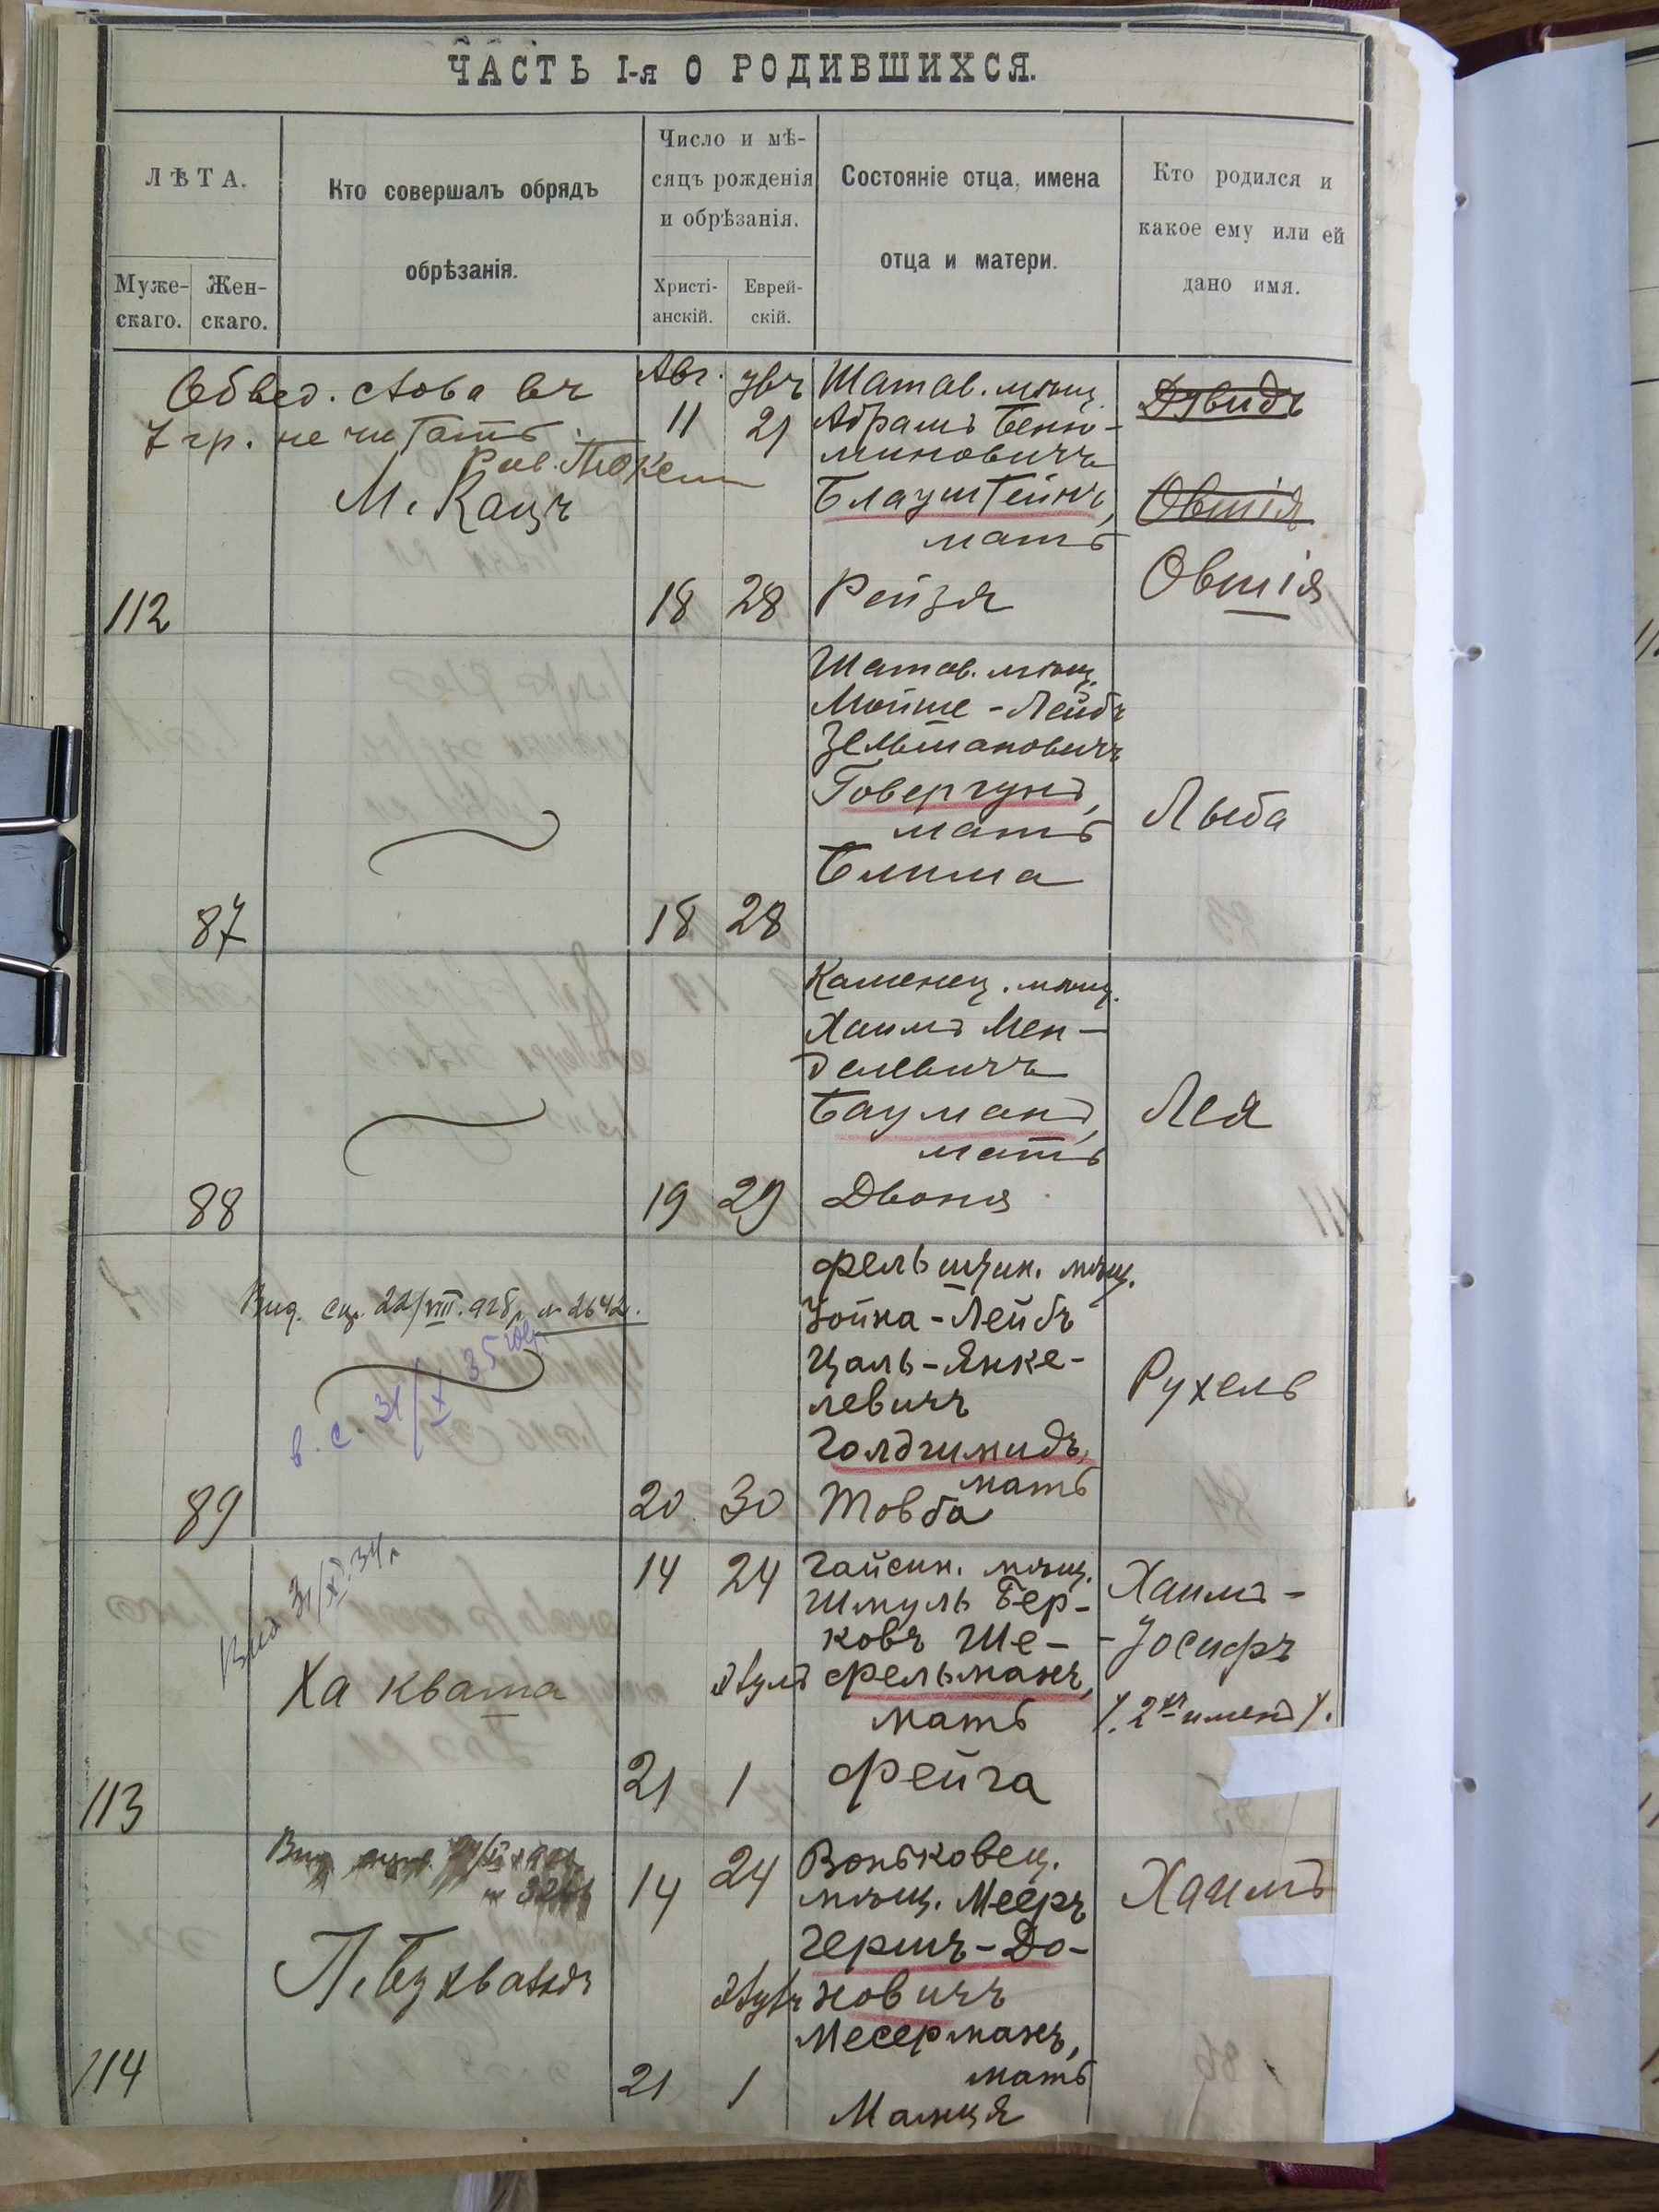 ЧАСТЬ I-я О РОДИВШИХСЯ.
ЛѢТА.
Муже-
скаго.
Жен-
скаго.
Кто совершалъ обрядъ
обрѣзанія.
Число и мѣ-
сяцъ рожденія
и обрѣзанія.
Христі-
анскій.
Еврей-
скій.
Состояніе отца, имена
отца и матери.
Кто родился и
какое ему или ей
дано имя.
слова въ
7 гр. не читать.
Рав.
М. Кацъ
112
Авг.
11 21
18 28
Шатав. мѣщ.
Абрамъ Беню-
миновичъ
Блауштейнъ,
мать
Рейзя
Давидъ
Овшія
Овшія
87
18 28
Шатав. мѣщ.
Мойше-Лейбъ
Зельмановичъ
Говергунъ,
мать
Блима
Лыба
88
19 29
Каменец. мѣщ.
Хаимъ Мен-
делевичъ
Бауманъ,
мать
Двоня
Лея
22/VIII.928 г. № 2642.
в. с. 31/X 35
89
20 30
Фельштин. мѣщ.
Іойна-Лейбъ
Цаль-Янке-
левичъ
Голдшмидъ,
мать
Товба
Рухель
Ха Квата
113
14 24
21 1
Гайсин. мѣщ.
Шмуль Бер-
ковъ Ше-
фельманъ,
мать
Фейга
Хаимъ-
-Іосифъ
/. 2хъ именъ /.
114
14 24
21 1
Воньковец.
мѣщ. Мееръ
Гершъ-До-
новичъ
Месерманъ,
мать
Манця
Хаимъ